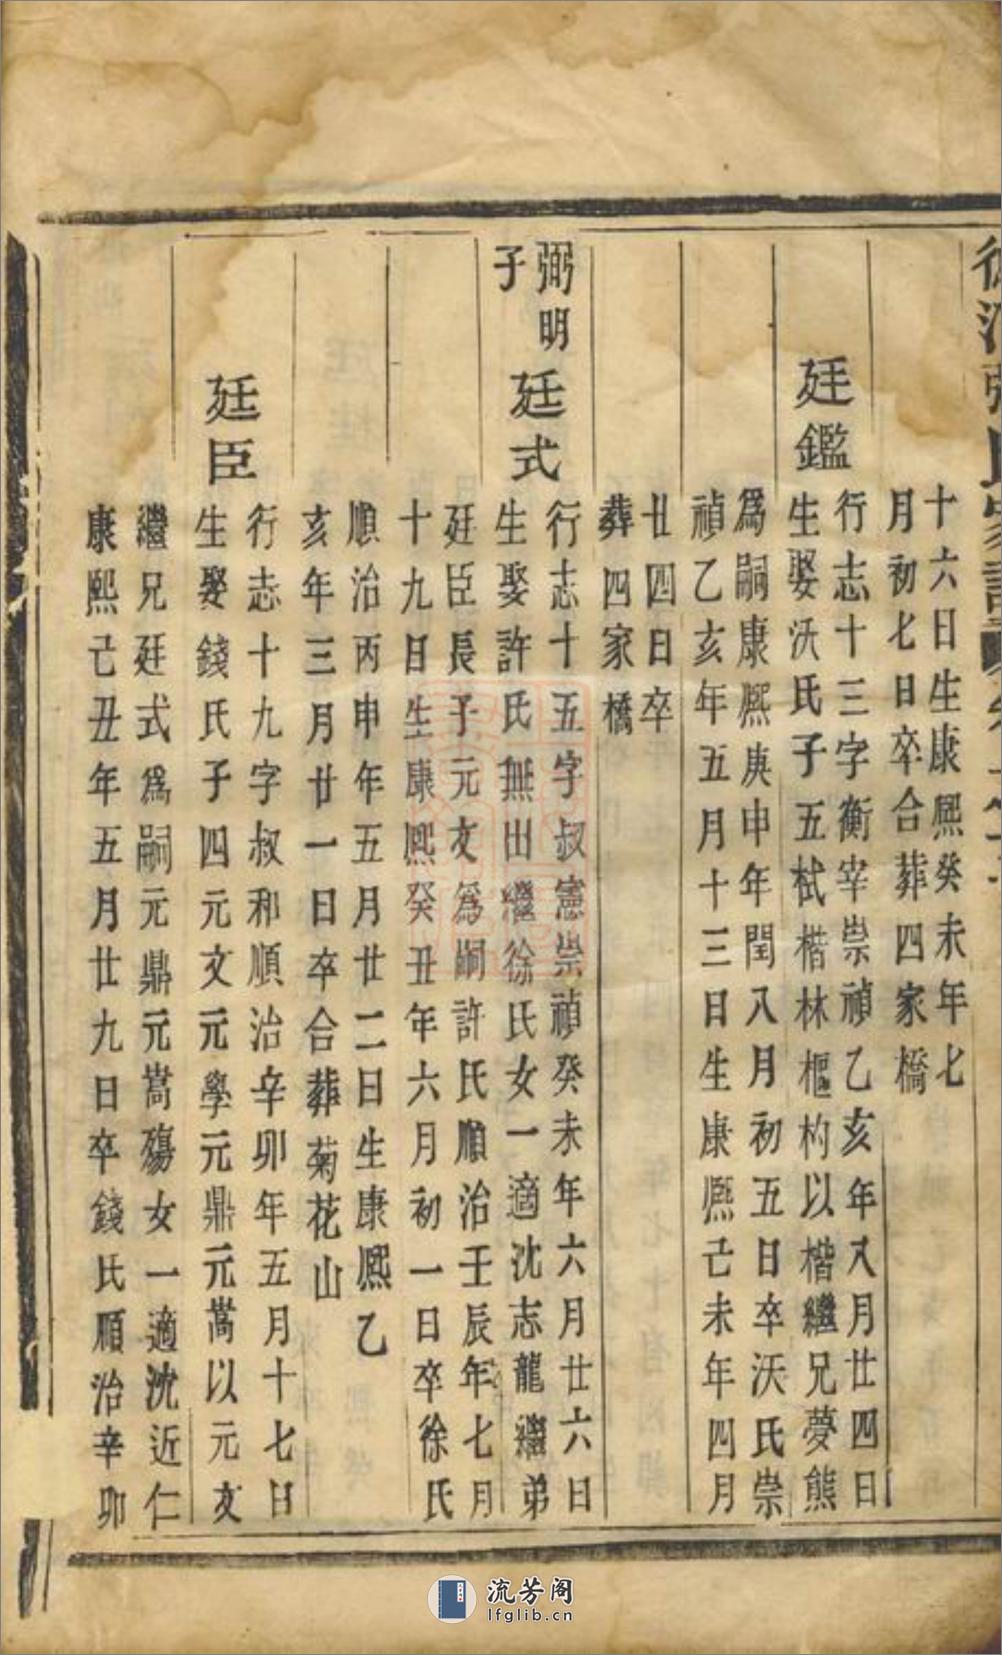 張氏家譜
十六日生康熙癸未年七
月初七日卒合葬四家橋
廷鑑
行志十三字衡宰崇禎乙亥年八月廿四日
生娶沃氏子五栻楷林樞杓以楷繼兄夢熊
爲嗣康熙庚申年閏八月初五日卒沃氏崇
禎乙亥年五月十三日生康熙己未年四月
廿四日卒
葬四家橋
弼明
子
廷式
行志十五字叔憲崇禎癸未年六月廿六日
生娶許氏無出繼徐氏女一適沈志龍繼弟
廷臣長子元文爲嗣許氏順治壬辰年七月
十九日生康熙癸丑年六月初一日卒徐氏
順治丙申年五月廿二日生康熙乙
亥年三月廿一日卒合葬菊花山
廷臣
行志十九字叔和順治辛卯年五月十七日
生娶錢氏子四元文元學元鼎元嵩以元文
繼兄廷式爲嗣元鼎元嵩殤女一適沈近仁
康熙己丑年五月廿九日卒錢氏順治辛卯
流芳阁
lfglib.cn